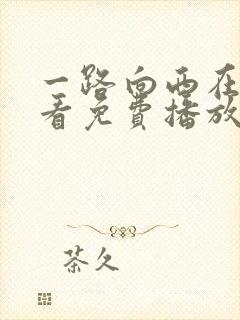 一路向西在
看免费播放
茶久